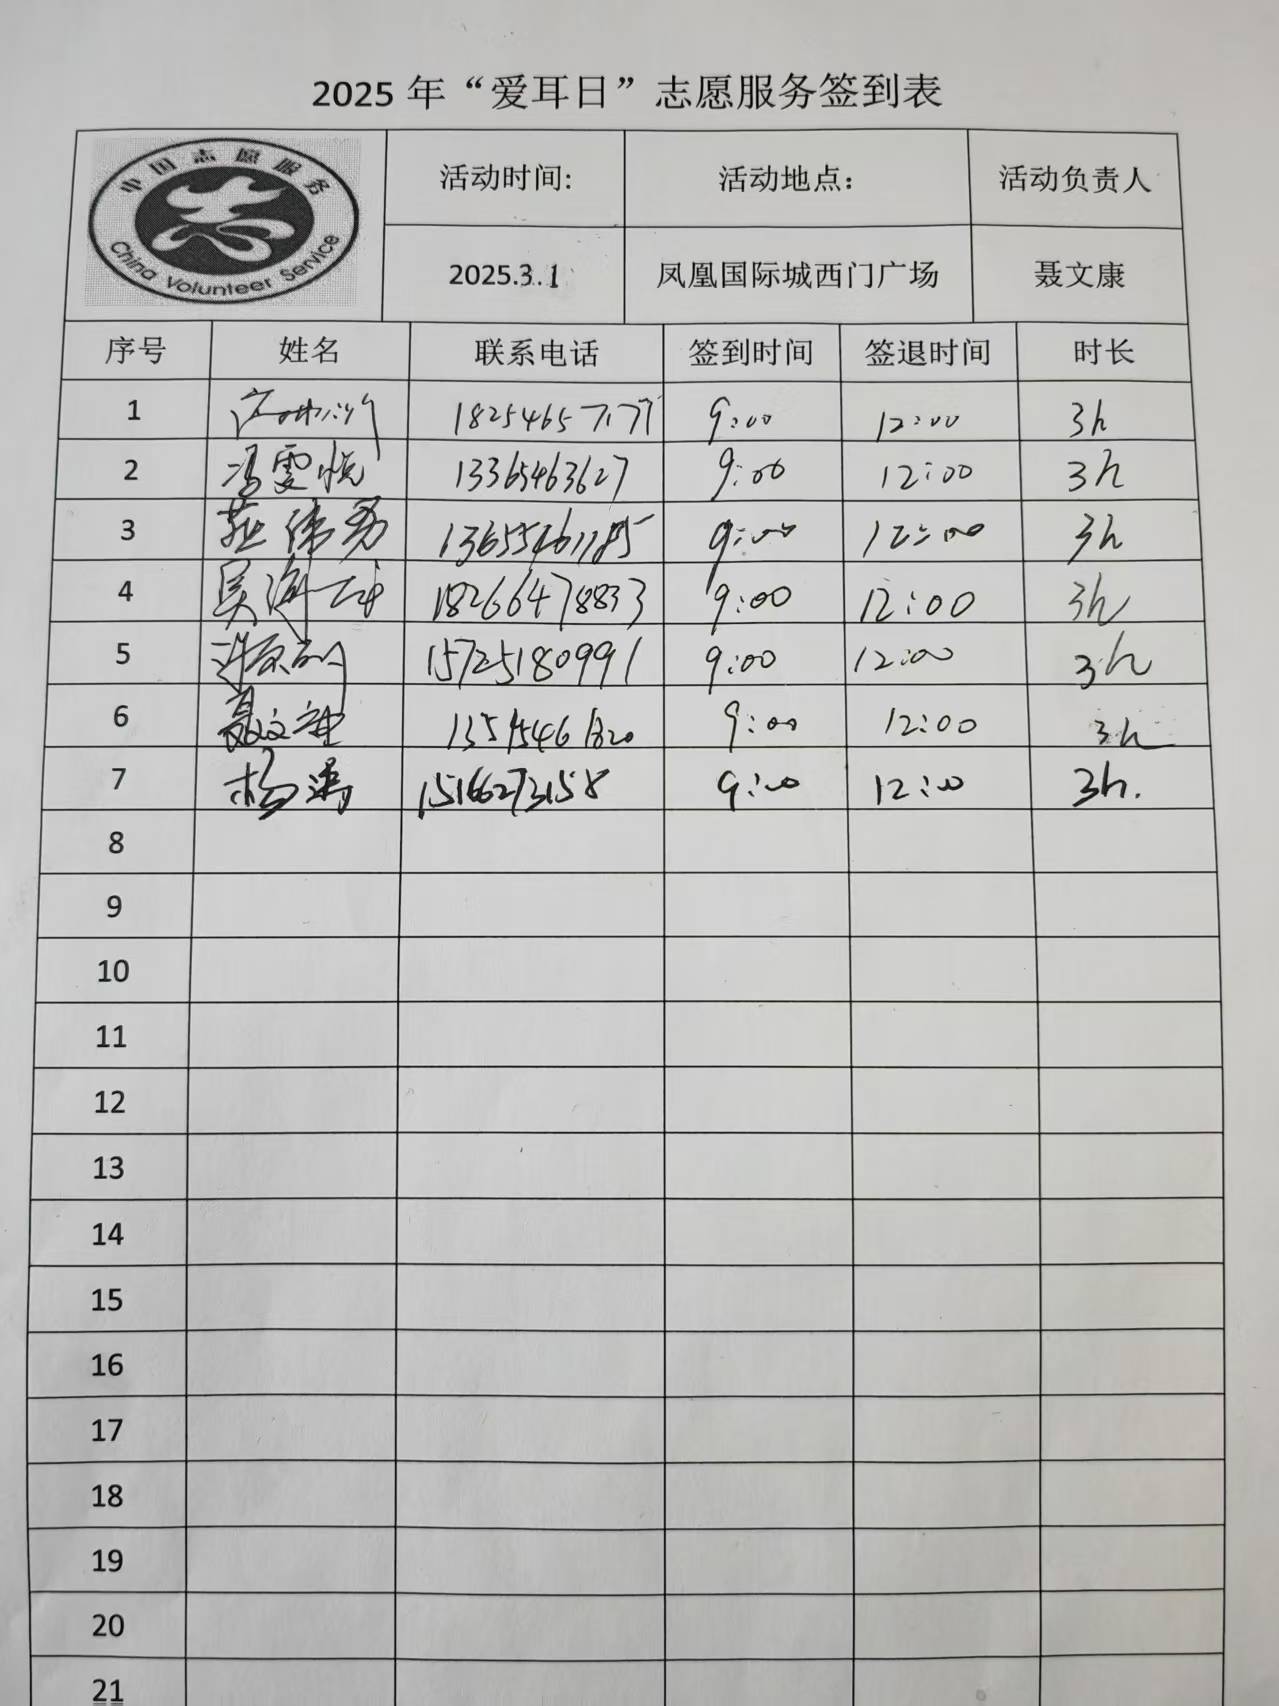 2025 年“爱耳日”志愿服务签到表
中国志愿服务
China Volunteer Service
活动时间: 活动地点: 活动负责人
2025.3.1 凤凰国际城西门广场 聂文康
序号 姓名 联系电话 签到时间 签退时间 时长
1 9:00 12:00 3h
2 冯雯悦 13365463627 9:00 12:00 3h
3 9:00 12:00 3h
4 18266478833 9:00 12:00 3h
5 15725180991 9:00 12:00 3h
6 聂文康 9:00 12:00 3h
7 杨涛 15166273158 9:00 12:00 3h.
8
9
10
11
12
13
14
15
16
17
18
19
20
21